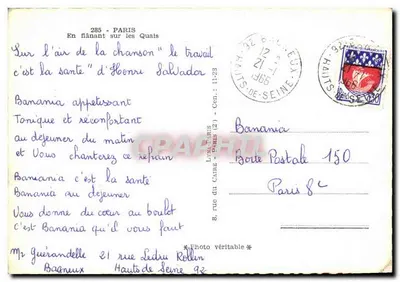 285 - PARIS
En flânant sur les Quais
Sur l'air de la chanson " le travail
c'est la santé" d'Henri Salvador
Banania appetissant
Tonique et reconfortant
au déjeuner du matin
et Vous chanterez ce refrain
Banania c'est la santé
Banania au dejeuner
Vous donne du cœur au boulot
C'est Banania qu'il vous faut
Mr Guérandelle 21 rue Ledru Rollin
Bagneux Hauts de Seine 92
8, rue du CAIRE - PARIS (2)
Banania
Boite Postale 150
Paris 8e
12
21
1966
HAUTS-DE-SEINE
* Photo véritable *